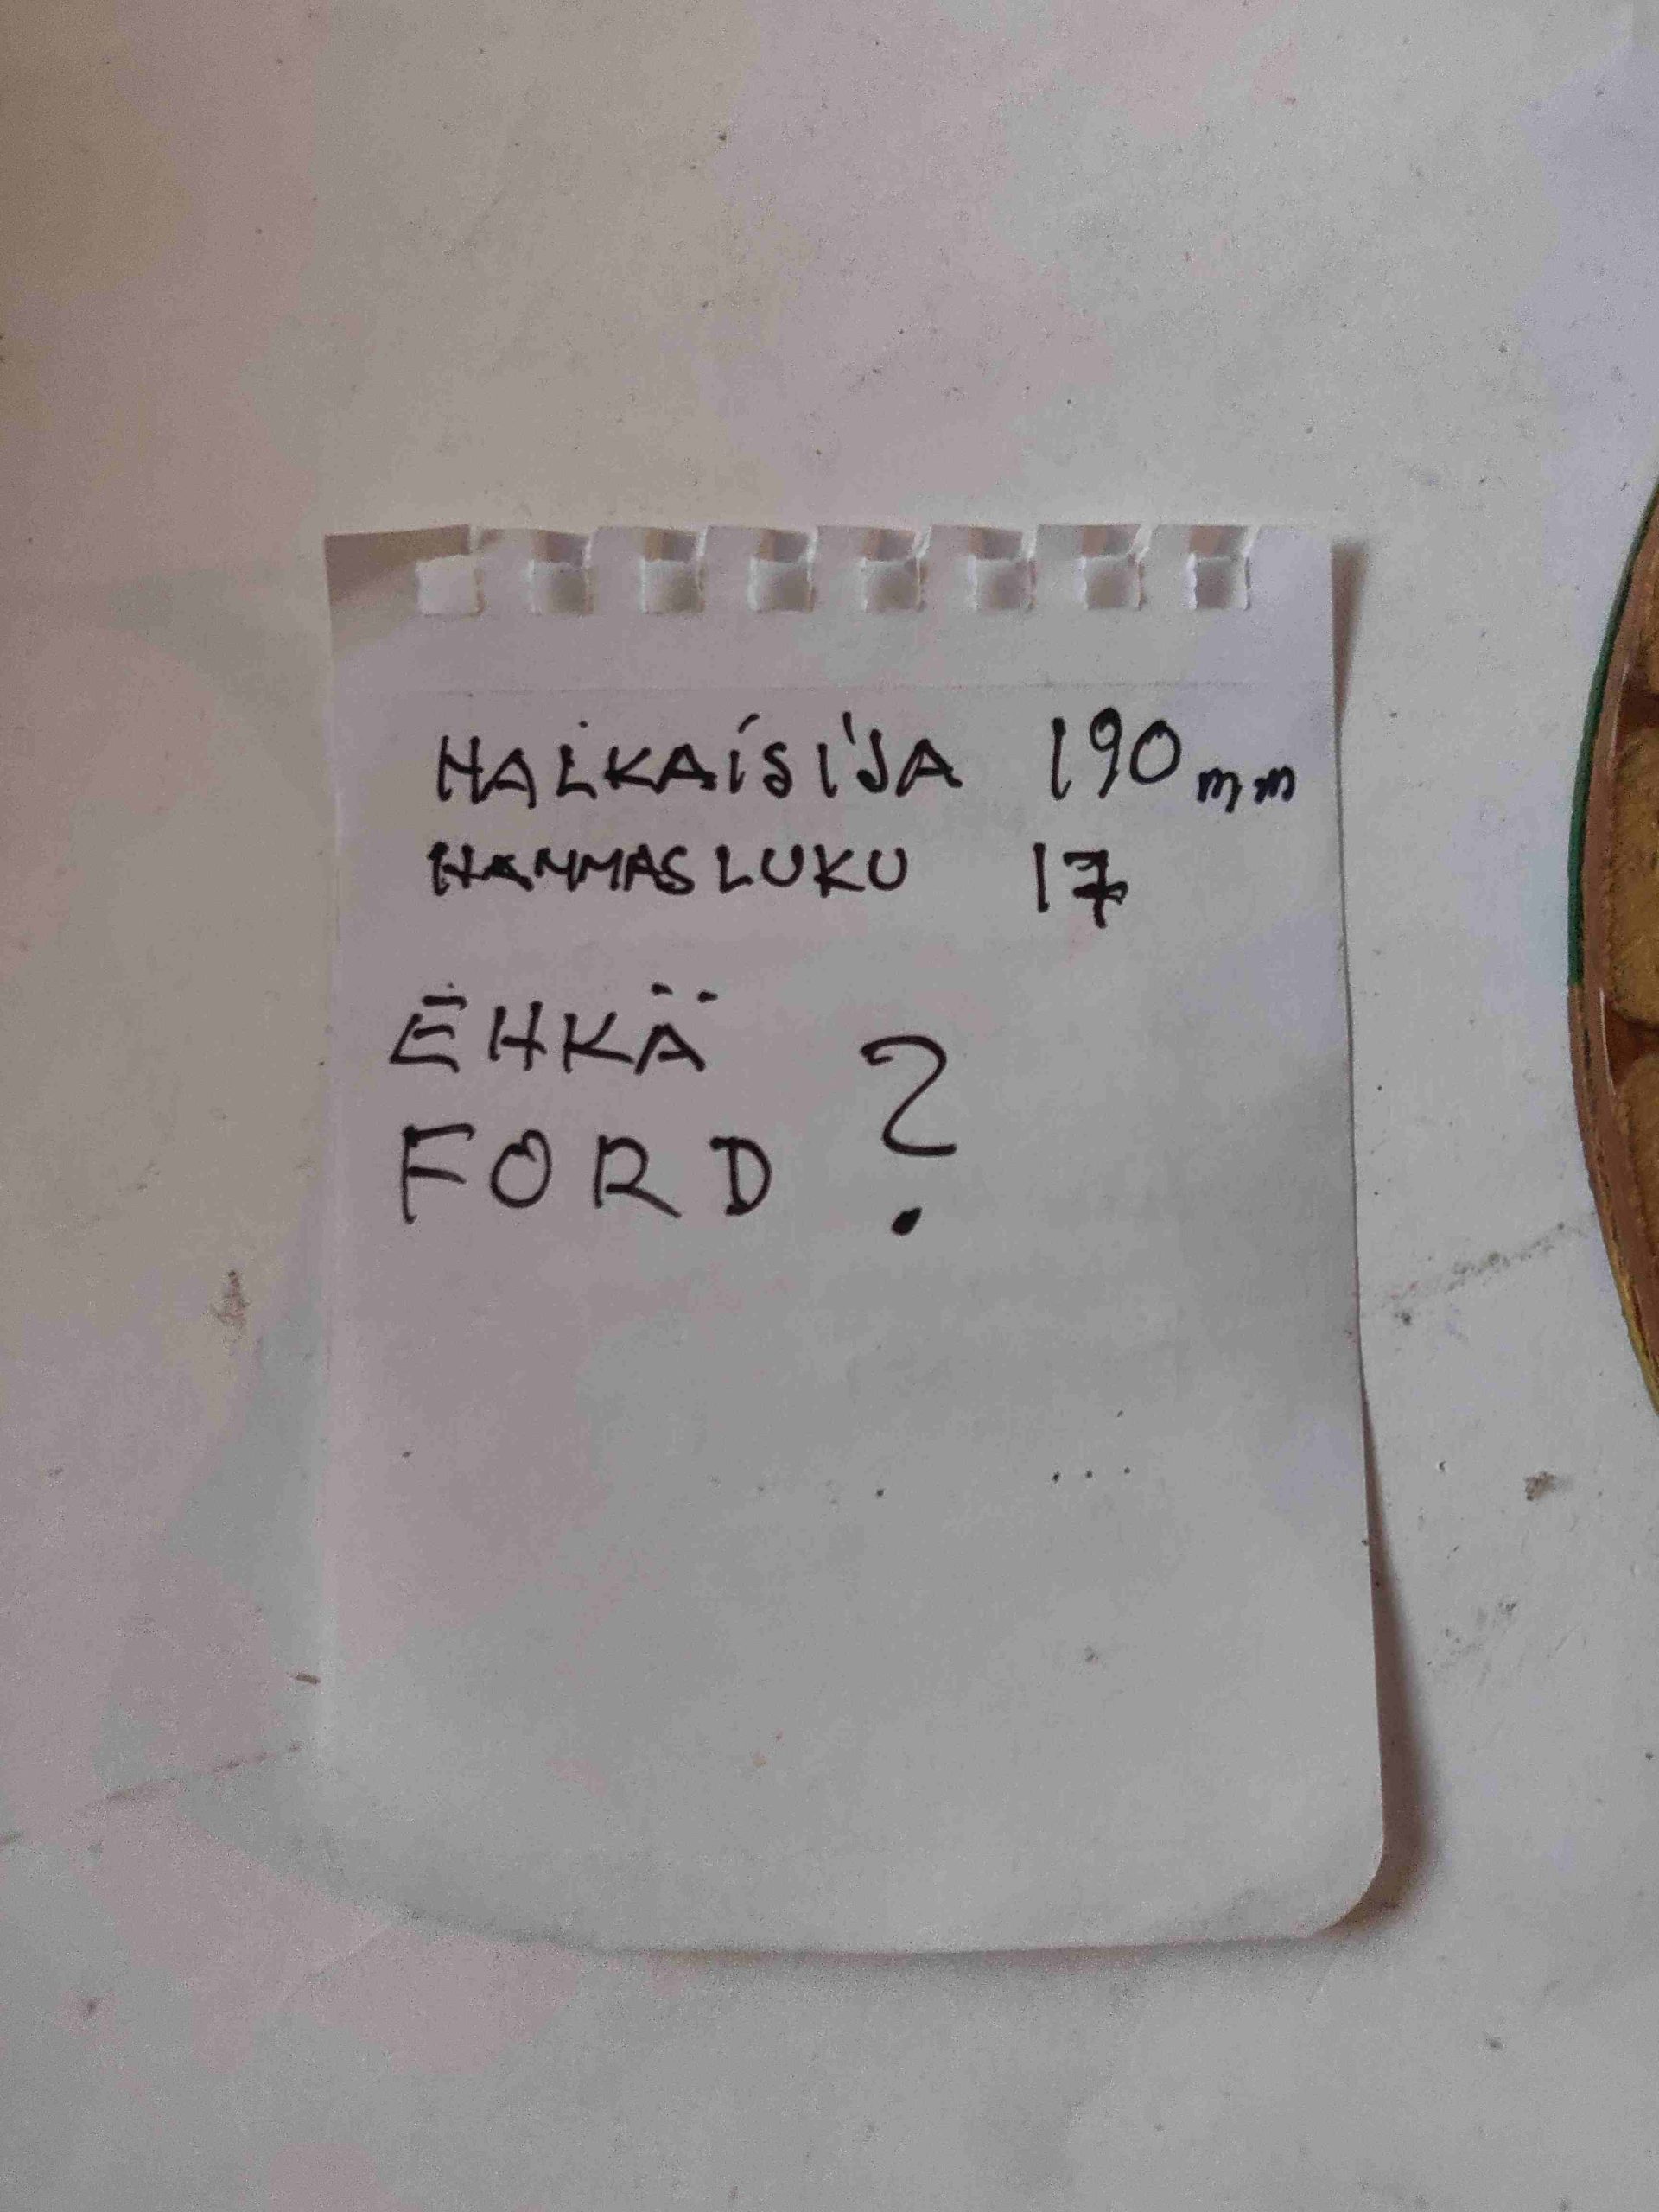 HALKAISIJA 190 mm
HAMMASLUKU 17
EHKÄ ?
FORD